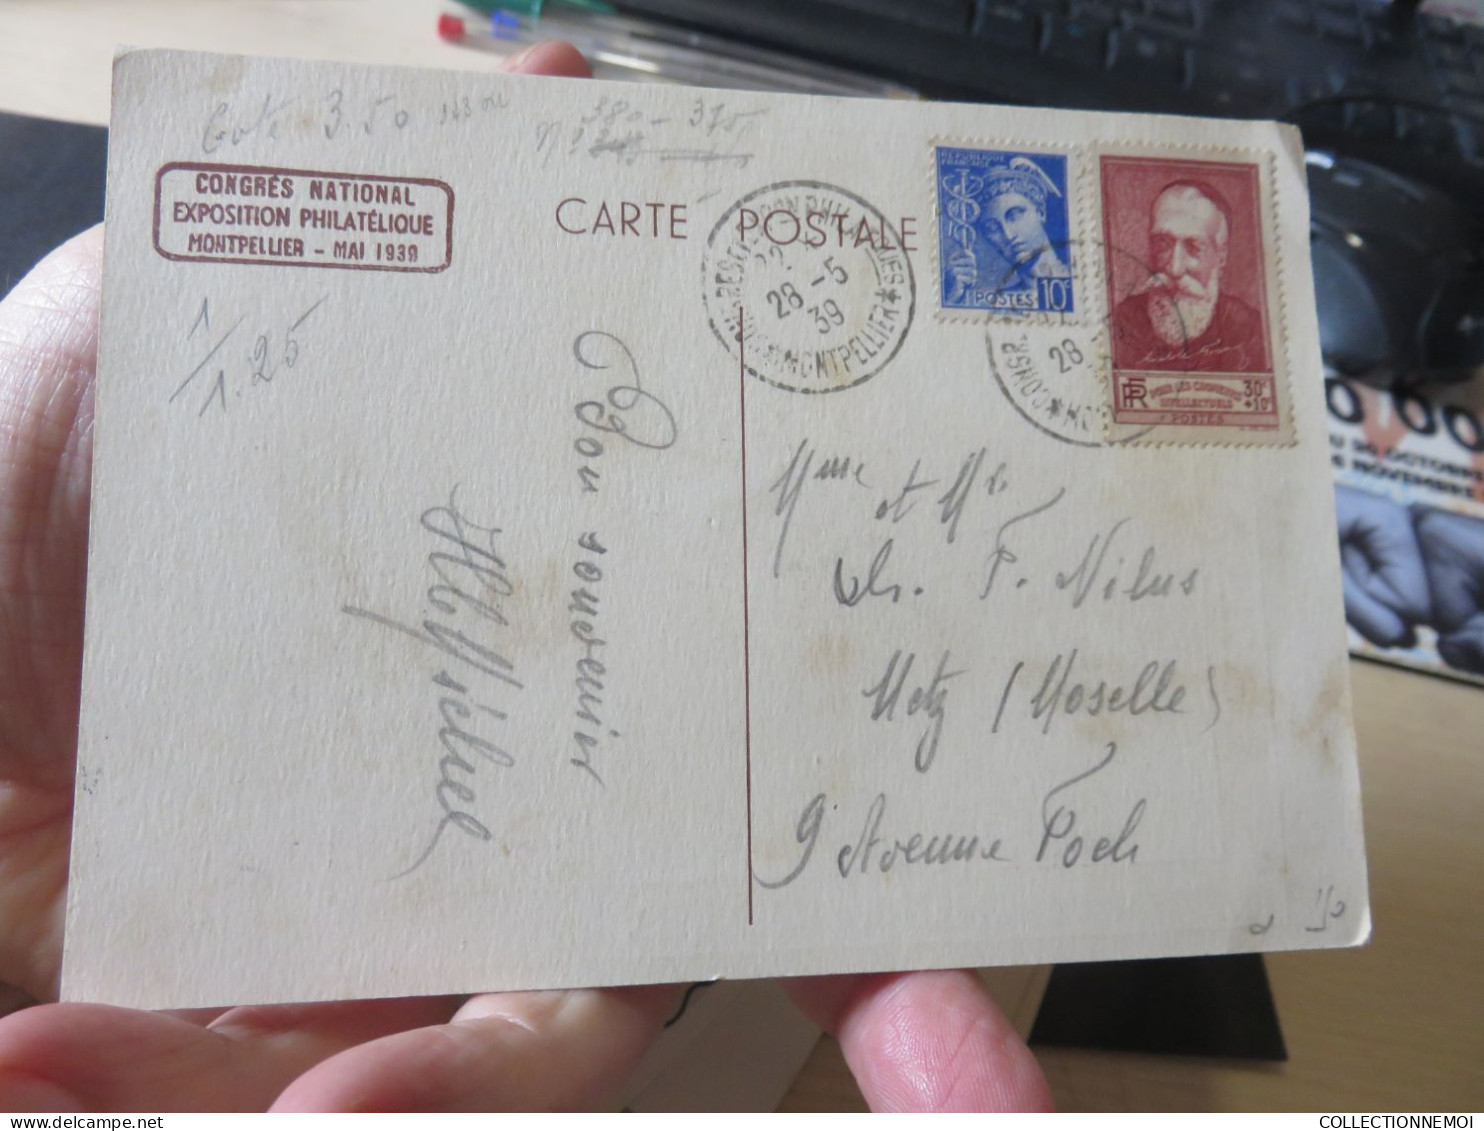 Cote 3.50
380 - 375
CONGRÈS NATIONAL
EXPOSITION PHILATÉLIQUE
MONTPELLIER - MAI 1939
CARTE POSTALE
28 -5
39
MONTPELLIER
RÉPUBLIQUE
FRANÇAISE
POSTES 10c
28
RF POUR LES CHÔMEURS INTELLECTUELS 30c +10c
POSTES
1/1.25
Bon souvenir
Mme et Mr
Ch. F. Nilus
Metz (Moselle)
9 Avenue Foch
COLLECTIONNEMOI